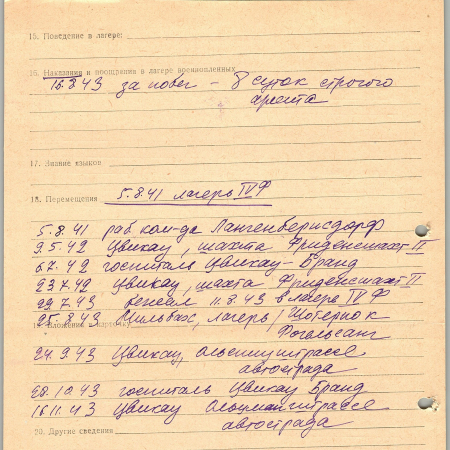 15. Поведение в лагере:
16. Наказания и поощрения в лагере военнопленных
16.8.43 за побег – 8 суток строгого
ареста
17. Знание языков
18. Перемещения 5.8.41 лагерь IV Ф
5.8.41 раб. ком-да Лангенберисдорф
9.5.42 Цвикау, шахта Фриденсшахт II
6.7.42 госпиталь Цвикау-Бранд
23.7.42 Цвикау, шахта Фриденсшахт II
29.7.43 бежал 11.8.43 в лагере IV Ф
25.8.43 лагерь
19. Вложения в карточку
Фогельсанг
24.9.43 Цвикау,
автострада
20.10.43 госпиталь Цвикау Бранд
16.11.43 Цвикау
автострада
20. Другие сведения